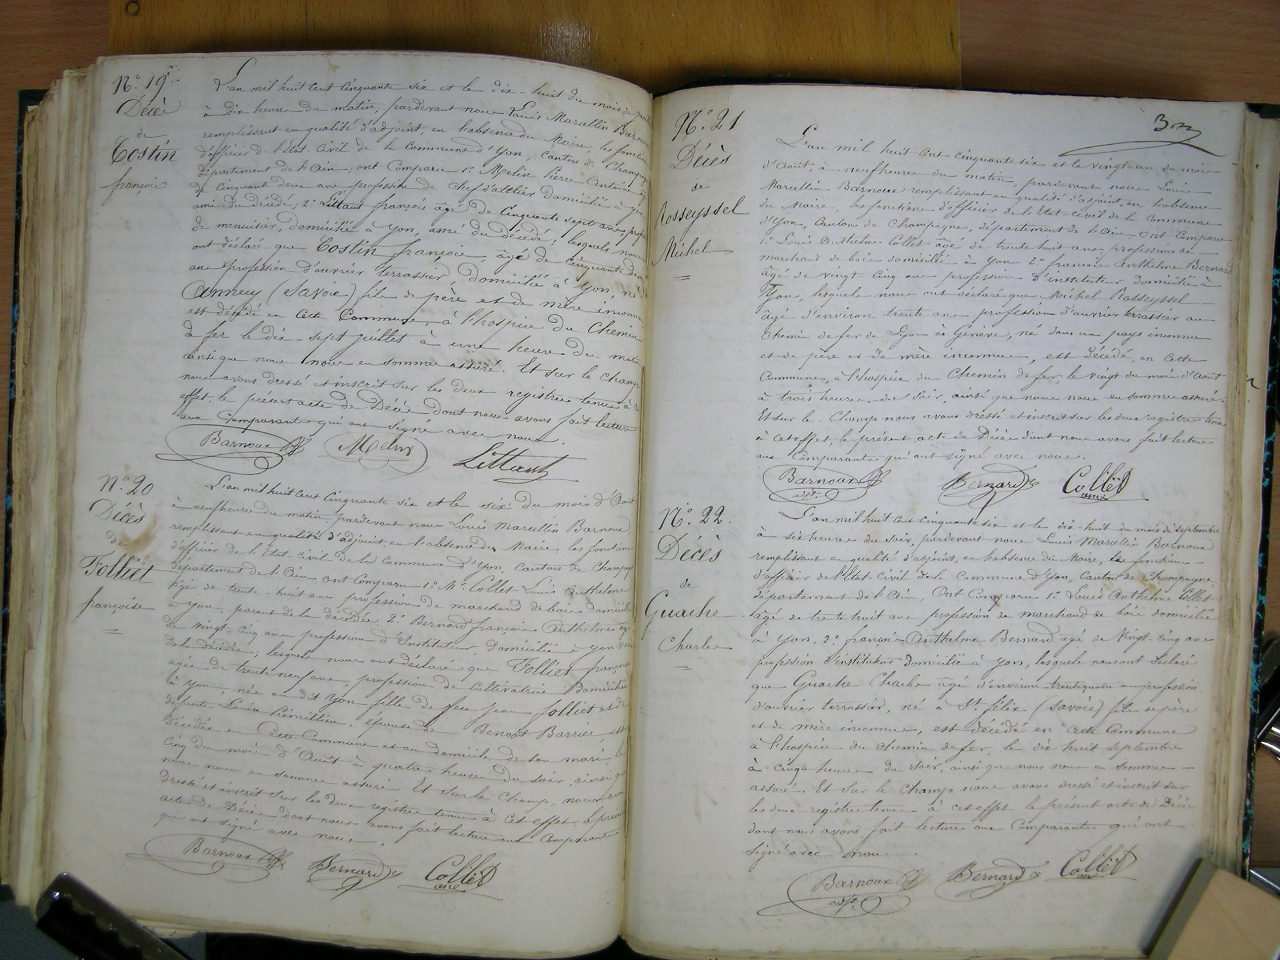 N° 19
Décès
de
Costin
françois
L'an mil huit cent cinquante six et le dix-huit du mois de
à dix heures du matin, pardevant nous Louis Marcellin Barnoux
remplissant en qualité d'adjoint, en l'absence du Maire, les fonctions
d'officier de l'état civil de la Commune d'Yon, canton de Champagne
département de l'Ain, ont Comparu 1° Melin Pierre Antoine
de cinquante deux ans profession de chef d'attelier domicilié à Yon
ami du décédé, 2° Littaut françois âgé de cinquante sept ans profession
de menuisier, domicilié à Yon, ami du décédé, lesquels nous
ont déclaré que Costin françois, âgé de cinquante
ans profession d'ouvrier terrassier, domicilié à Yon, né à
Annecy (Savoie) fils de père et de mère inconnus
est décédé en cette Commune, à l'hospice du Chemin
de fer le dix-sept juillet à une heure du matin
ainsi que nous nous en sommes assuré. Et sur le champ
nous avons dressé et inscrit sur les deux registres tenus à cet
effet, le présent acte de Décès dont nous avons fait lecture
aux Comparants qui ont signé avec nous.
Barnoux Melin Littaut
N° 20
Décès
de
Folliet
françoise
L'an mil huit cent cinquante six et le six du mois d'Août
à neuf heures du matin, pardevant nous Louis Marcellin Barnoux
remplissant en qualité d'adjoint, en l'absence du Maire, les fonctions
d'officier de l'Etat civil de la commune d'Yon, canton de Champagne
département de l'Ain, ont Comparu 1° Mr Collet Louis Anthelme
âgé de trente-huit ans profession de marchand de bois domicilié
à Yon, parent de la décédée, 2° Bernard françois Anthelme âgé
de vingt-cinq ans profession d'Instituteur, domicilié à Yon
de la décédée, lesquels nous ont déclaré que Folliet françoise
agée de trente neuf ans, profession de cultivatrice Domiciliée
à Yon, née au dit Yon fille de feu Jean Folliet et de
épouse de Benoît Barrier est
décédée en cette Commune et au domicile de son mari, le
cinq du mois d'Août à quatre heures du soir, ainsi que
nous nous en sommes assuré. Et sur le champ, nous avons
dressé et inscrit sur les deux registres tenus à cet effet, le présent
acte de Décès dont nous avons fait lecture aux Comparants
qui ont signé avec nous.
Barnoux Bernard Collet
N° 21
Décès
de
Rosseyssel
Michel
L'an mil huit cent cinquante six et le vingt un du mois
d'Août, à neuf heures du matin, pardevant nous Louis
Marcellin Barnoux remplissant en qualité d'adjoint, en l'absence
du Maire, les fonctions d'officier de l'Etat civil de la Commune
d'Yon, Canton de Champagne, département de l'Ain ont Comparu
1° Louis Anthelme Collet âgé de trente huit ans, profession de
marchand de bois domicilié à Yon 2° françois Anthelme Bernard
âgé de vingt cinq ans profession d'instituteur domicilié à
Yon, lesquels nous ont déclaré que Michel Rosseyssel
âgé d'environ trente ans profession d'ouvrier terrassier au
Chemin de fer de Lyon à Genève, né dans un pays inconnu
et de père et de mère inconnus, est décédé, en cette
Commune, à l'hospice du Chemin de fer, le vingt du mois d'Août
à trois heures du soir, ainsi que nous nous en sommes assuré
Et sur le Champ nous avons dressé et inscrit sur les deux registres tenus
à cet effet, le présent acte de Décès dont nous avons fait lecture
aux Comparants qui ont signé avec nous.
Barnoux Bernard Collet
N° 22
Décès
de
Guache
Charles
L'an mil huit cent cinquante six et le dix-huit du mois de Septembre
à six heures du soir, pardevant nous Louis Marcellin Barnoux
remplissant en qualité d'adjoint, en l'absence du Maire, les fonctions
d'officier de l'Etat civil de la Commune d'Yon, Canton de Champagne,
département de l'Ain, Ont Comparu 1° Louis Anthelme Collet
âgé de trente huit ans profession de marchand de bois domicilié
à Yon, 2° françois Anthelme Bernard âgé de Vingt cinq ans
profession d'instituteur domicilié à Yon, lesquels nous ont déclaré
que Guache Charles âgé d'environ ans profession
d'ouvrier terrassier, né à St félix (Savoie) fils de père
et de mère inconnus, est décédé en cette Commune
à l'hospice du chemin de fer, le dix huit septembre
à cinq heures du soir, ainsi que nous nous en sommes
assuré. Et sur le Champ nous avons dressé et inscrit sur
les deux registres tenus à cet effet le présent acte de Décès
dont nous avons fait lecture aux Comparants qui ont
signé avec nous.
Barnoux Bernard Collet